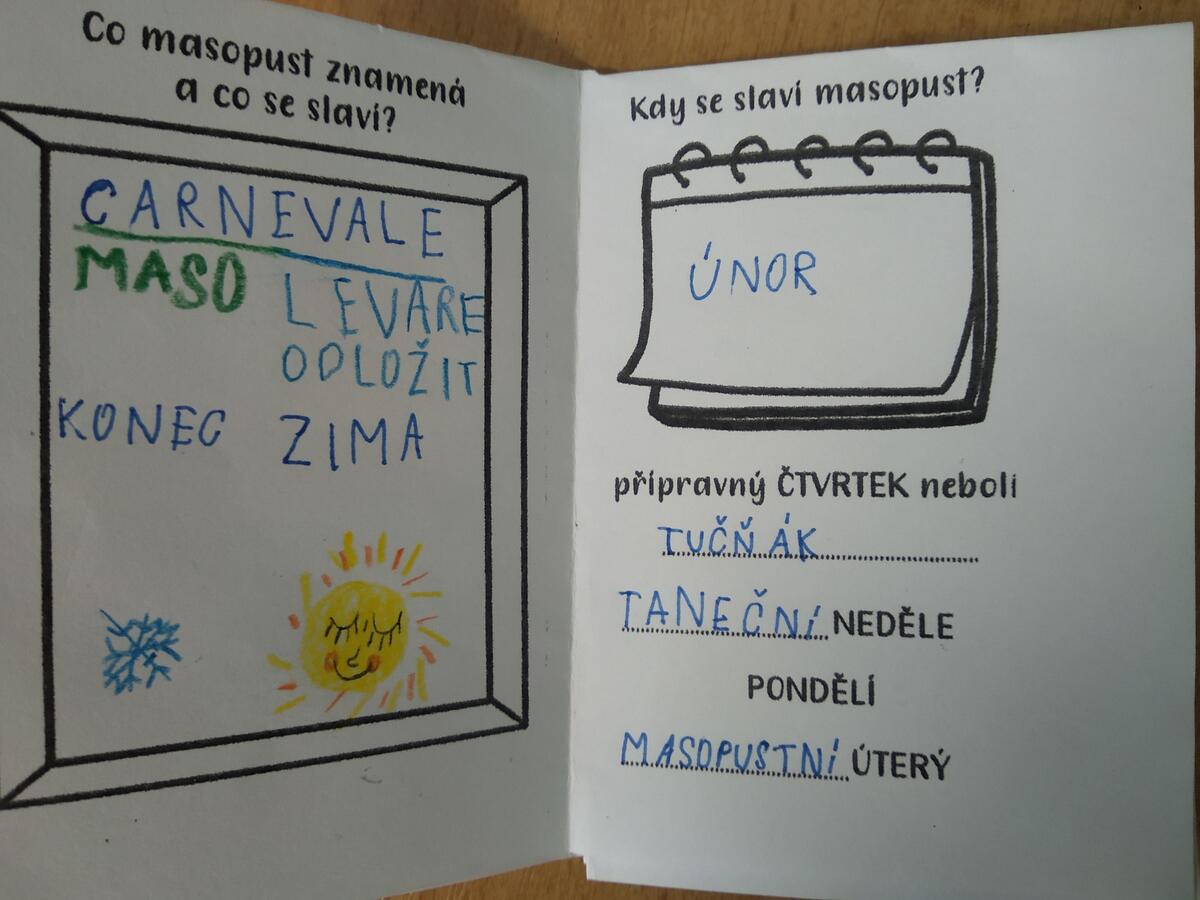 Co masopust znamená
a co se slaví?
CARNEVALE
MASO LEVARE
ODLOŽIT
KONEC ZIMA
Kdy se slaví masopust?
ÚNOR
přípravný ČTVRTEK neboli
TUČŇÁK
TANEČNÍ NEDĚLE
PONDĚLÍ
MASOPUSTNÍ ÚTERÝ